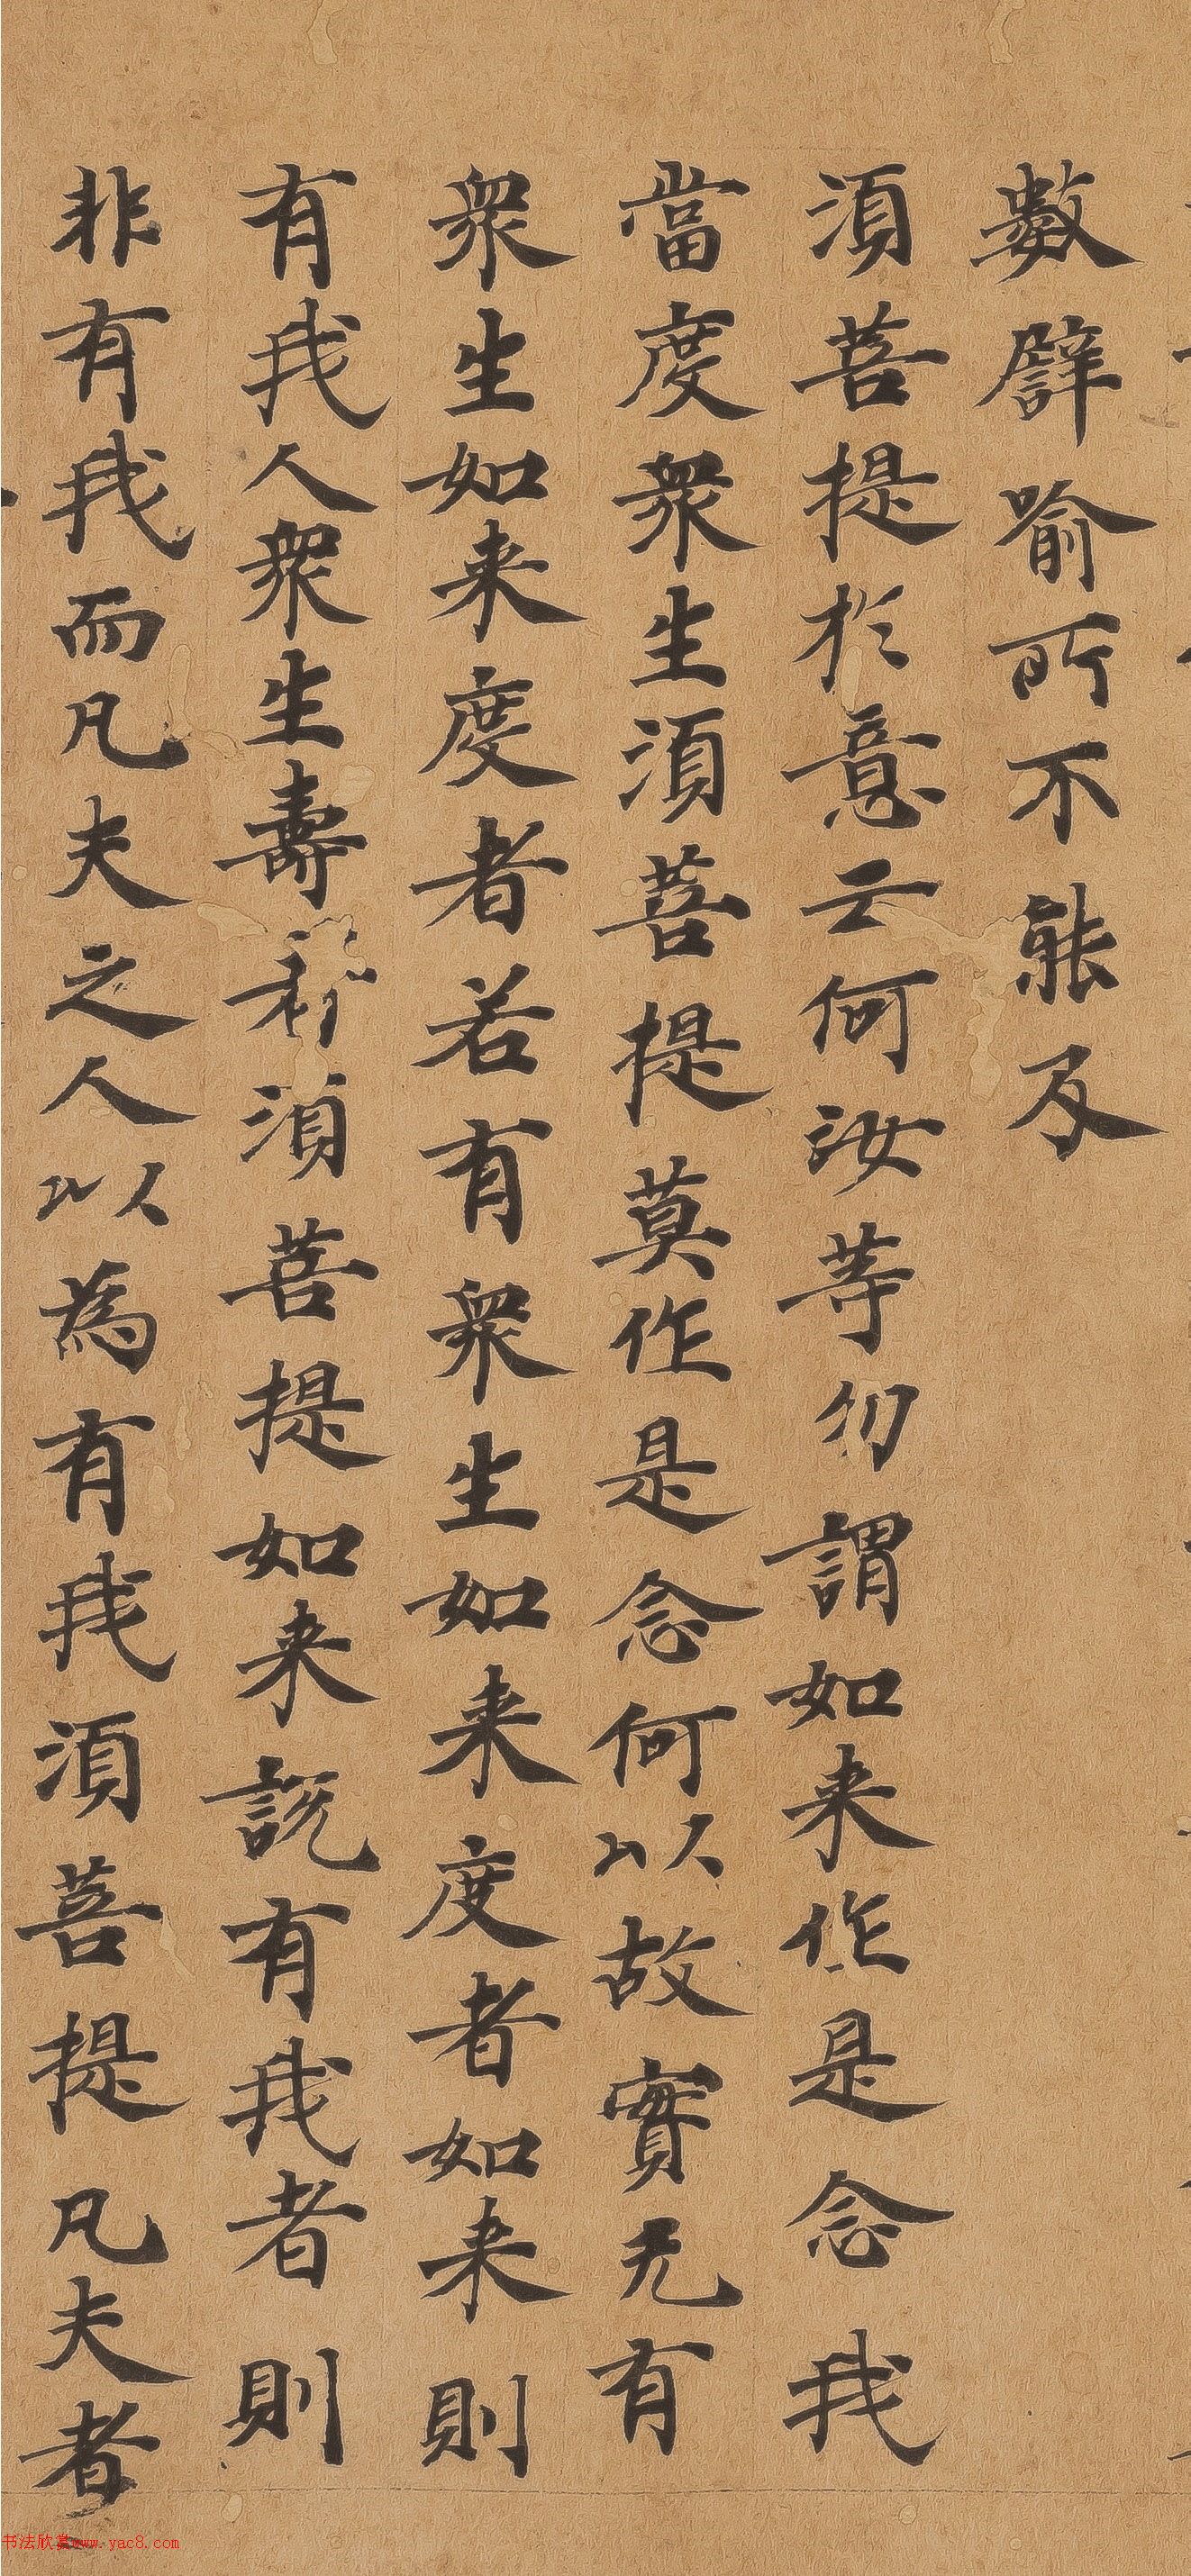 數譬喻所不能及
須菩提於意云何汝等勿謂如来作是念我
當度衆生須菩提莫作是念何以故實无有
衆生如来度者若有衆生如来度者如来則
有我人衆生壽者須菩提如来說有我者則
非有我而凡夫之人以為有我須菩提凡夫者
书法欣赏www.yac8.com